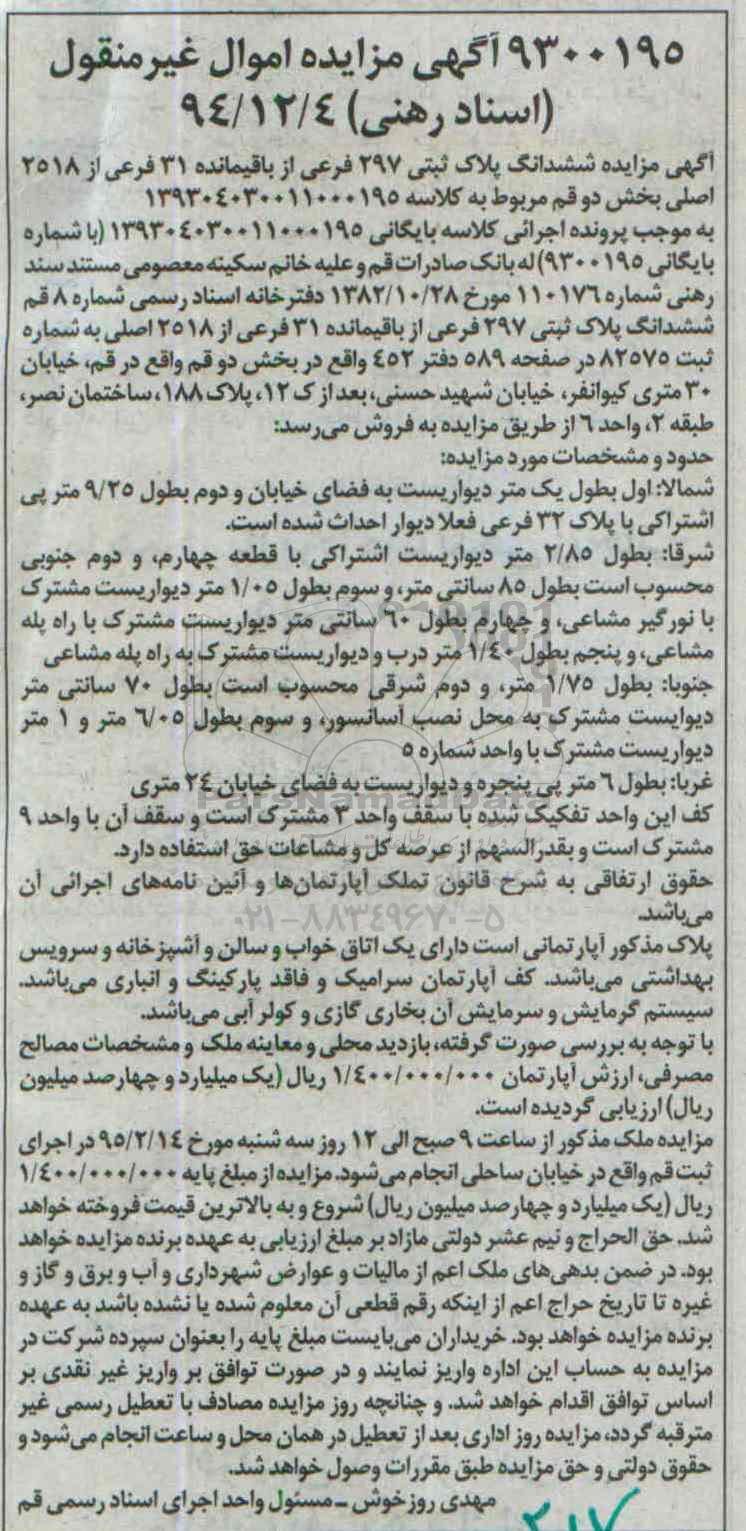 ۹۳۰۰۱۹۵ آگهی مزایده اموال غیرمنقول
(اسناد رهنی) ۹٤/۱۲/٤
آگهی مزایده ششدانگ پلاک ثبتی ۲۹۷ فرعی از باقیمانده ۳۱ فرعی از ۲۵۱۸
اصلی بخش دو قم مربوط به کلاسه ۱۳۹۳۰٤۰۳۰۰۱۱۰۰۰۱۹۵
به موجب پرونده اجرائی کلاسه بایگانی ۱۳۹۳۰٤۰۳۰۰۱۱۰۰۰۱۹۵ (با شماره
بایگانی ۹۳۰۰۱۹۵) له بانک صادرات قم و علیه خانم سکینه معصومی مستند سند
رهنی شماره ۱۱۰۱۷٦ مورخ ۱۳۸۲/۱۰/۲۸ دفترخانه اسناد رسمی شماره ۸ قم
ششدانگ پلاک ثبتی ۲۹۷ فرعی از باقیمانده ۳۱ فرعی از ۲۵۱۸ اصلی به شماره
ثبت ۸۲۵۷۵ در صفحه ۵۸۹ دفتر ٤۵۲ واقع در بخش دو قم واقع در قم، خیابان
۳۰ متری کیوانفر، خیابان شهید حسنی، بعد از ک ۱۲، پلاک ۱۸۸، ساختمان نصر،
طبقه ۲، واحد ٦ از طریق مزایده به فروش می‌رسد:
حدود و مشخصات مورد مزایده:
شمالا: اول بطول یک متر دیواریست به فضای خیابان و دوم بطول ۹/۲۵ متر پی
اشتراکی با پلاک ۳۲ فرعی فعلا دیوار احداث شده است.
شرقا: بطول ۲/۸۵ متر دیواریست اشتراکی با قطعه چهارم، و دوم جنوبی
محسوب است بطول ۸۵ سانتی متر، و سوم بطول ۱/۰۵ متر دیواریست مشترک
با نورگیر مشاعی، و چهارم بطول ٦۰ سانتی متر دیواریست مشترک با راه پله
مشاعی، و پنجم بطول ۱/٤۰ متر درب و دیواریست مشترک به راه پله مشاعی
جنوبا: بطول ۱/۷۵ متر، و دوم شرقی محسوب است بطول ۷۰ سانتی متر
دیوایست مشترک به محل نصب آسانسور، و سوم بطول ٦/۰۵ متر و ۱ متر
دیواریست مشترک با واحد شماره ۵
غربا: بطول ٦ متر پی پنجره و دیواریست به فضای خیابان ۲٤ متری
ParsNamadData
کف این واحد تفکیک شده با سقف واحد ۳ مشترک است و سقف آن با واحد ۹
مشترک است و بقدرالسهم از عرصه کل و مشاعات حق استفاده دارد.
حقوق ارتفاقی به شرح قانون تملک آپارتمان‌ها و آئین نامه‌های اجرائی آن
می‌باشد.
۰۲۱-۸۸۳٤۹٦۷۰-۵
پلاک مذکور آپارتمانی است دارای یک اتاق خواب و سالن و آشپزخانه و سرویس
بهداشتی می‌باشد. کف آپارتمان سرامیک و فاقد پارکینگ و انباری می‌باشد.
سیستم گرمایش و سرمایش آن بخاری گازی و کولر آبی می‌باشد.
با توجه به بررسی صورت گرفته، بازدید محلی و معاینه ملک و مشخصات مصالح
مصرفی، ارزش آپارتمان ۱/٤۰۰/۰۰۰/۰۰۰ ریال (یک میلیارد و چهارصد میلیون
ریال) ارزیابی گردیده است.
مزایده ملک مذکور از ساعت ۹ صبح الی ۱۲ روز سه شنبه مورخ ۹۵/۲/۱٤ در اجرای
ثبت قم واقع در خیابان ساحلی انجام می‌شود. مزایده از مبلغ پایه ۱/٤۰۰/۰۰۰/۰۰۰
ریال (یک میلیارد و چهارصد میلیون ریال) شروع و به بالاترین قیمت فروخته خواهد
شد. حق الحراج و نیم عشر دولتی مازاد بر مبلغ ارزیابی به عهده برنده مزایده خواهد
بود. در ضمن بدهی‌های ملک اعم از مالیات و عوارض شهرداری و آب و برق و گاز و
غیره تا تاریخ حراج اعم از اینکه رقم قطعی آن معلوم شده یا نشده باشد به عهده
برنده مزایده خواهد بود. خریداران می‌بایست مبلغ پایه را بعنوان سپرده شرکت در
مزایده به حساب این اداره واریز نمایند و در صورت توافق بر واریز غیر نقدی بر
اساس توافق اقدام خواهد شد. و چنانچه روز مزایده مصادف با تعطیل رسمی غیر
مترقبه گردد، مزایده روز اداری بعد از تعطیل در همان محل و ساعت انجام می‌شود و
حقوق دولتی و حق مزایده طبق مقررات وصول خواهد شد.
مهدی روزخوش - مسئول واحد اجرای اسناد رسمی قم
۲۱۷